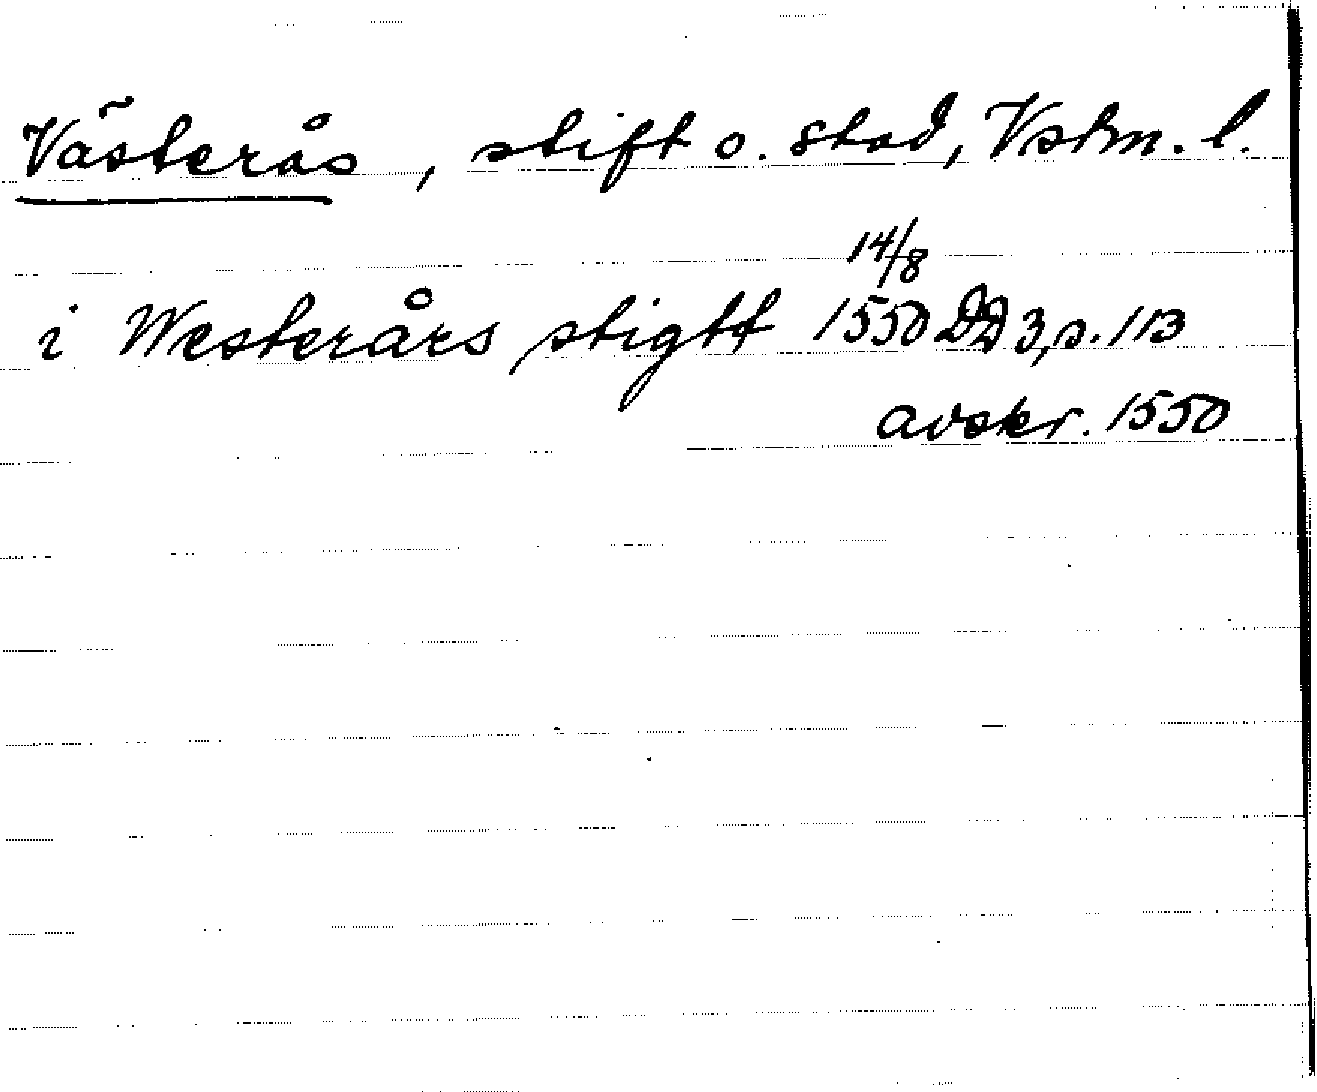 Västerås, stift o. stad, Vstm. l.
14/8
i Westerårs stigtt 1550 DD 3, s. 113
avskr. 1550